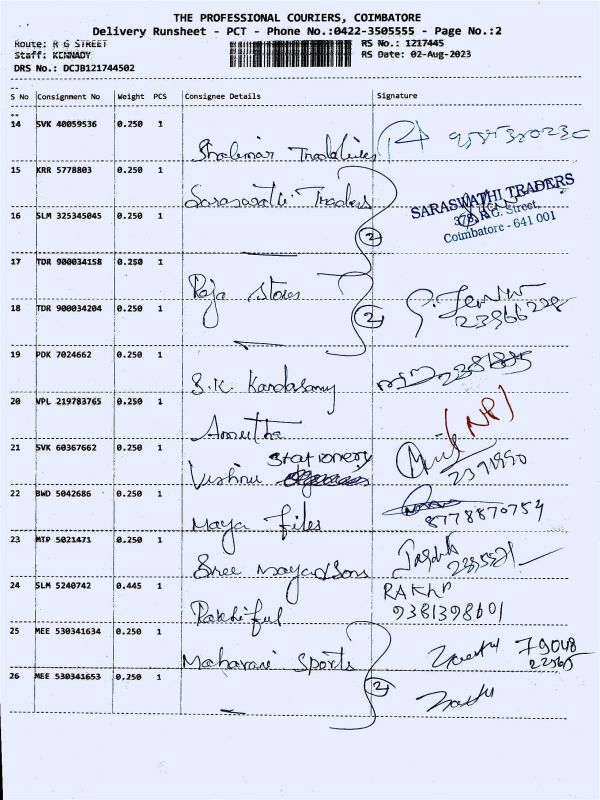 THE PROFESSIONAL COURIERS, COIMBATORE
Delivery Runsheet - PCT - Phone No.:0422-3505555 - Page No.:2
Route: R G STREET RS No.: 1217445
Staff: KENNADY RS Date: 02-Aug-2023
DRS No.: DCJB121744502
S No Consignment No Weight PCS Consignee Details Signature
14 SVK 40059536 0.250 1
Shalimar
15 KRR 5778803 0.250 1
Saraswathi Traders
SARASWATHI TRADERS
R.G. Street,
Coimbatore - 641 001
16 SLM 325345045 0.250 1
2
17 TDR 900034158 0.250 1
Raja Stores
18 TDR 900034204 0.250 1
2
19 PDK 7024662 0.250 1
S.K. Kandasamy
20 VPL 219783765 0.250 1
Amutha (NP)
21 SVK 60367662 0.250 1
Vishnu Stationery
2391990
22 BWD 5042686 0.250 1
Maya Files 8778870754
23 MTP 5021471 0.250 1
Sree
24 SLM 5240742 0.445 1
RAKHP
Rakhiful 9381398601
25 MEE 530341634 0.250 1
Maharani Sports 79048
26 MEE 530341653 0.250 1
2